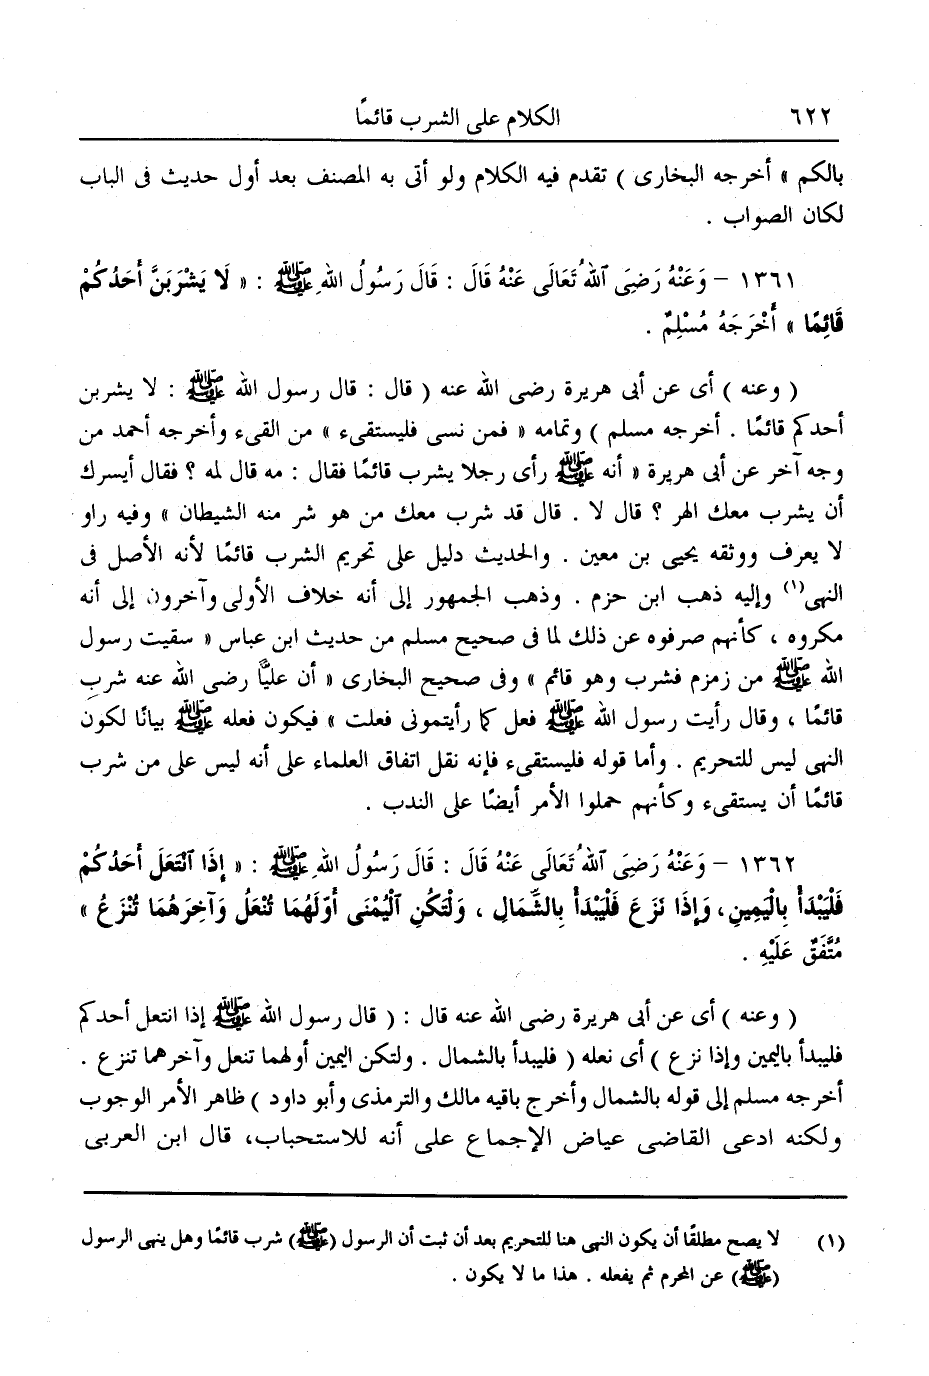 ٦٢٢ الكلام على الشرب قائمًا
بالكم » أخرجه البخارى ) تقدم فيه الكلام ولو أتى به المصنف بعد أول حديث فى الباب
لكان الصواب .
١٣٦١ – وَعَنْهُ رَضِيَ ٱللهُ تَعَالَى عَنْهُ قَالَ : قَالَ رَسُولُ اللهِ ﷺ : « لَا يَشْرَبَنَّ أَحَدُكُمْ
قَائِمًا » أَخْرَجَهُ مُسْلِمٌ .
( وعنه ) أى عن أبى هريرة رضى الله عنه ( قال : قال رسول الله ﷺ : لا يشربن
أحدكم قائمًا . أخرجه مسلم ) وتمامه « فمن نسى فليستقىء » من القىء وأخرجه أحمد من
وجه آخر عن أبى هريرة « أنه ﷺ رأى رجلا يشرب قائمًا فقال : مه قال لمه ؟ فقال أيسرك
أن يشرب معك الهر ؟ قال لا . قال قد شرب معك من هو شر منه الشيطان » وفيه راو
لا يعرف ووثقه يحيى بن معين . والحديث دليل على تحريم الشرب قائمًا لأنه الأصل فى
النهى(١) وإليه ذهب ابن حزم . وذهب الجمهور إلى أنه خلاف الأولى وآخرون إلى أنه
مكروه ، كأنهم صرفوه عن ذلك لما فى صحيح مسلم من حديث ابن عباس « سقيت رسول
الله ﷺ من زمزم فشرب وهو قائم » وفى صحيح البخارى « أن عليًّا رضى الله عنه شرب
قائمًا ، وقال رأيت رسول الله ﷺ فعل كما رأيتمونى فعلت » فيكون فعله ﷺ بيانًا لكون
النهى ليس للتحريم . وأما قوله فليستقىء فإنه نقل اتفاق العلماء على أنه ليس على من شرب
قائمًا أن يستقىء وكأنهم حملوا الأمر أيضًا على الندب .
١٣٦٢ – وَعَنْهُ رَضِيَ ٱللهُ تَعَالَى عَنْهُ قَالَ : قَالَ رَسُولُ اللهِ ﷺ : « إِذَا ٱنْتَعَلَ أَحَدُكُمْ
فَلْيَبْدَأْ بِالْيَمِينِ، وَإِذَا نَزَعَ فَلْيَبْدَأْ بِالشِّمَالِ ، وَلْتَكُنِ ٱلْيُمْنَى أَوَّلَهُمَا تُنْعَلُ وَآخِرَهُمَا تُنْزَعُ »
مُتَّفَقٌ عَلَيْهِ .
( وعنه ) أى عن أبى هريرة رضى الله عنه قال : ( قال رسول الله ﷺ إذا انتعل أحدكم
فليبدأ باليمين وإذا نزع ) أى نعله ( فليبدأ بالشمال . ولتكن اليمين أولهما تنعل وآخرهما تنزع .
أخرجه مسلم إلى قوله بالشمال وأخرج باقيه مالك والترمذى وأبو داود ) ظاهر الأمر الوجوب
ولكنه ادعى القاضى عياض الإجماع على أنه للاستحباب، قال ابن العربى
(١) لا يصح مطلقًا أن يكون النهى هنا للتحريم بعد أن ثبت أن الرسول (ﷺ) شرب قائمًا وهل ينهى الرسول
(ﷺ) عن المحرم ثم يفعله . هذا ما لا يكون .